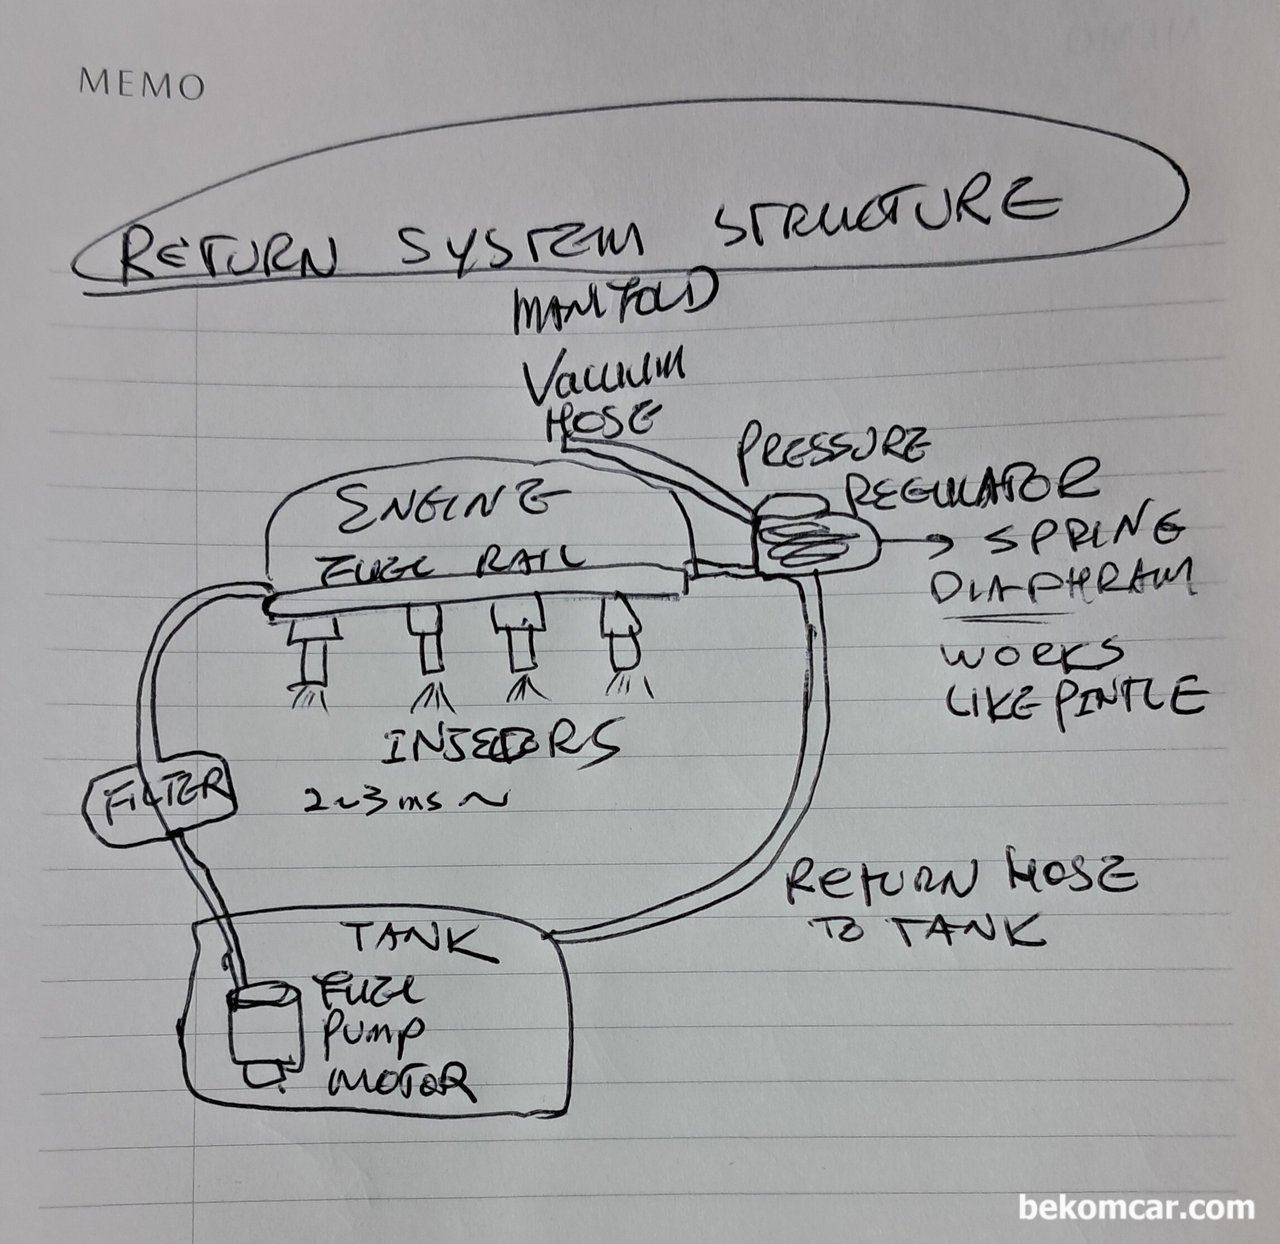 MEMO
RETURN SYSTEM STRUCTURE
MANIFOLD
VACUUM
HOSE
PRESSURE
REGULATOR
SPRING
DIAPHRAM
WORKS
LIKE PINTLE
ENGINE
FUEL RAIL
INJECTORS
2~3ms ~
FILTER
RETURN HOSE
TO TANK
TANK
FUEL
PUMP
MOTOR
bekomcar.com